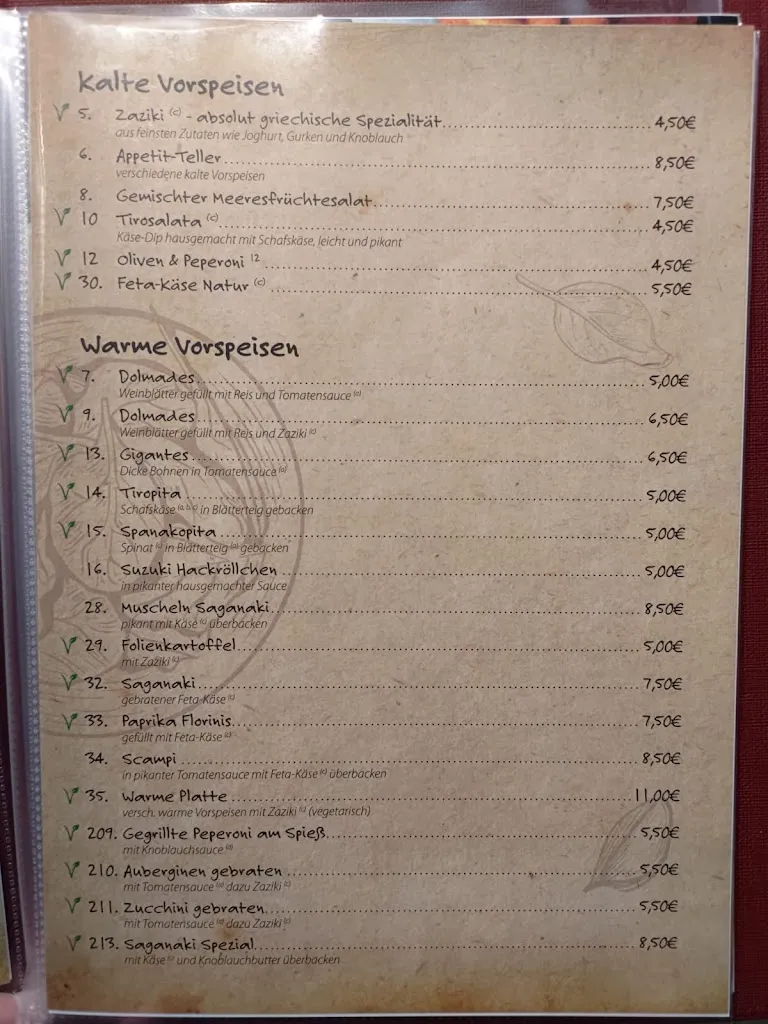 Kalte Vorspeisen
5. Zaziki (c) - absolut griechische Spezialität 4,50€
aus feinsten Zutaten wie Joghurt, Gurken und Knoblauch
6. Appetit-Teller 8,50€
verschiedene kalte Vorspeisen
8. Gemischter Meeresfrüchtesalat 7,50€
10 Tirosalata (c) 4,50€
Käse-Dip hausgemacht mit Schafskäse, leicht und pikant
12 Oliven & Peperoni 12 4,50€
30. Feta-Käse Natur (c) 5,50€
Warme Vorspeisen
7. Dolmades 5,00€
Weinblätter gefüllt mit Reis und Tomatensauce (a)
9. Dolmades 6,50€
Weinblätter gefüllt mit Reis und Zaziki (c)
13. Gigantes 6,50€
Dicke Bohnen in Tomatensauce (a)
14. Tiropita 5,00€
Schafskäse (a, b, c) in Blätterteig gebacken
15. Spanakopita 5,00€
Spinat (c) in Blätterteig (a) gebacken
16. Suzuki Hackröllchen 5,00€
in pikanter hausgemachter Sauce
28. Muscheln Saganaki 8,50€
pikant mit Käse (c) überbacken
29. Folienkartoffel 5,00€
mit Zaziki (c)
32. Saganaki 7,50€
gebratener Feta-Käse (c)
33. Paprika Florinis 7,50€
gefüllt mit Feta-Käse (c)
34. Scampi 8,50€
in pikanter Tomatensauce mit Feta-Käse (c) überbacken
35. Warme Platte 11,00€
versch. warme Vorspeisen mit Zaziki (c) (vegetarisch)
209. Gegrillte Peperoni am Spieß 5,50€
mit Knoblauchsauce (a)
210. Auberginen gebraten 5,50€
mit Tomatensauce (a) dazu Zaziki (c)
211. Zucchini gebraten 5,50€
mit Tomatensauce (a) dazu Zaziki (c)
213. Saganaki Spezial 8,50€
mit Käse (c) und Knoblauchbutter überbacken